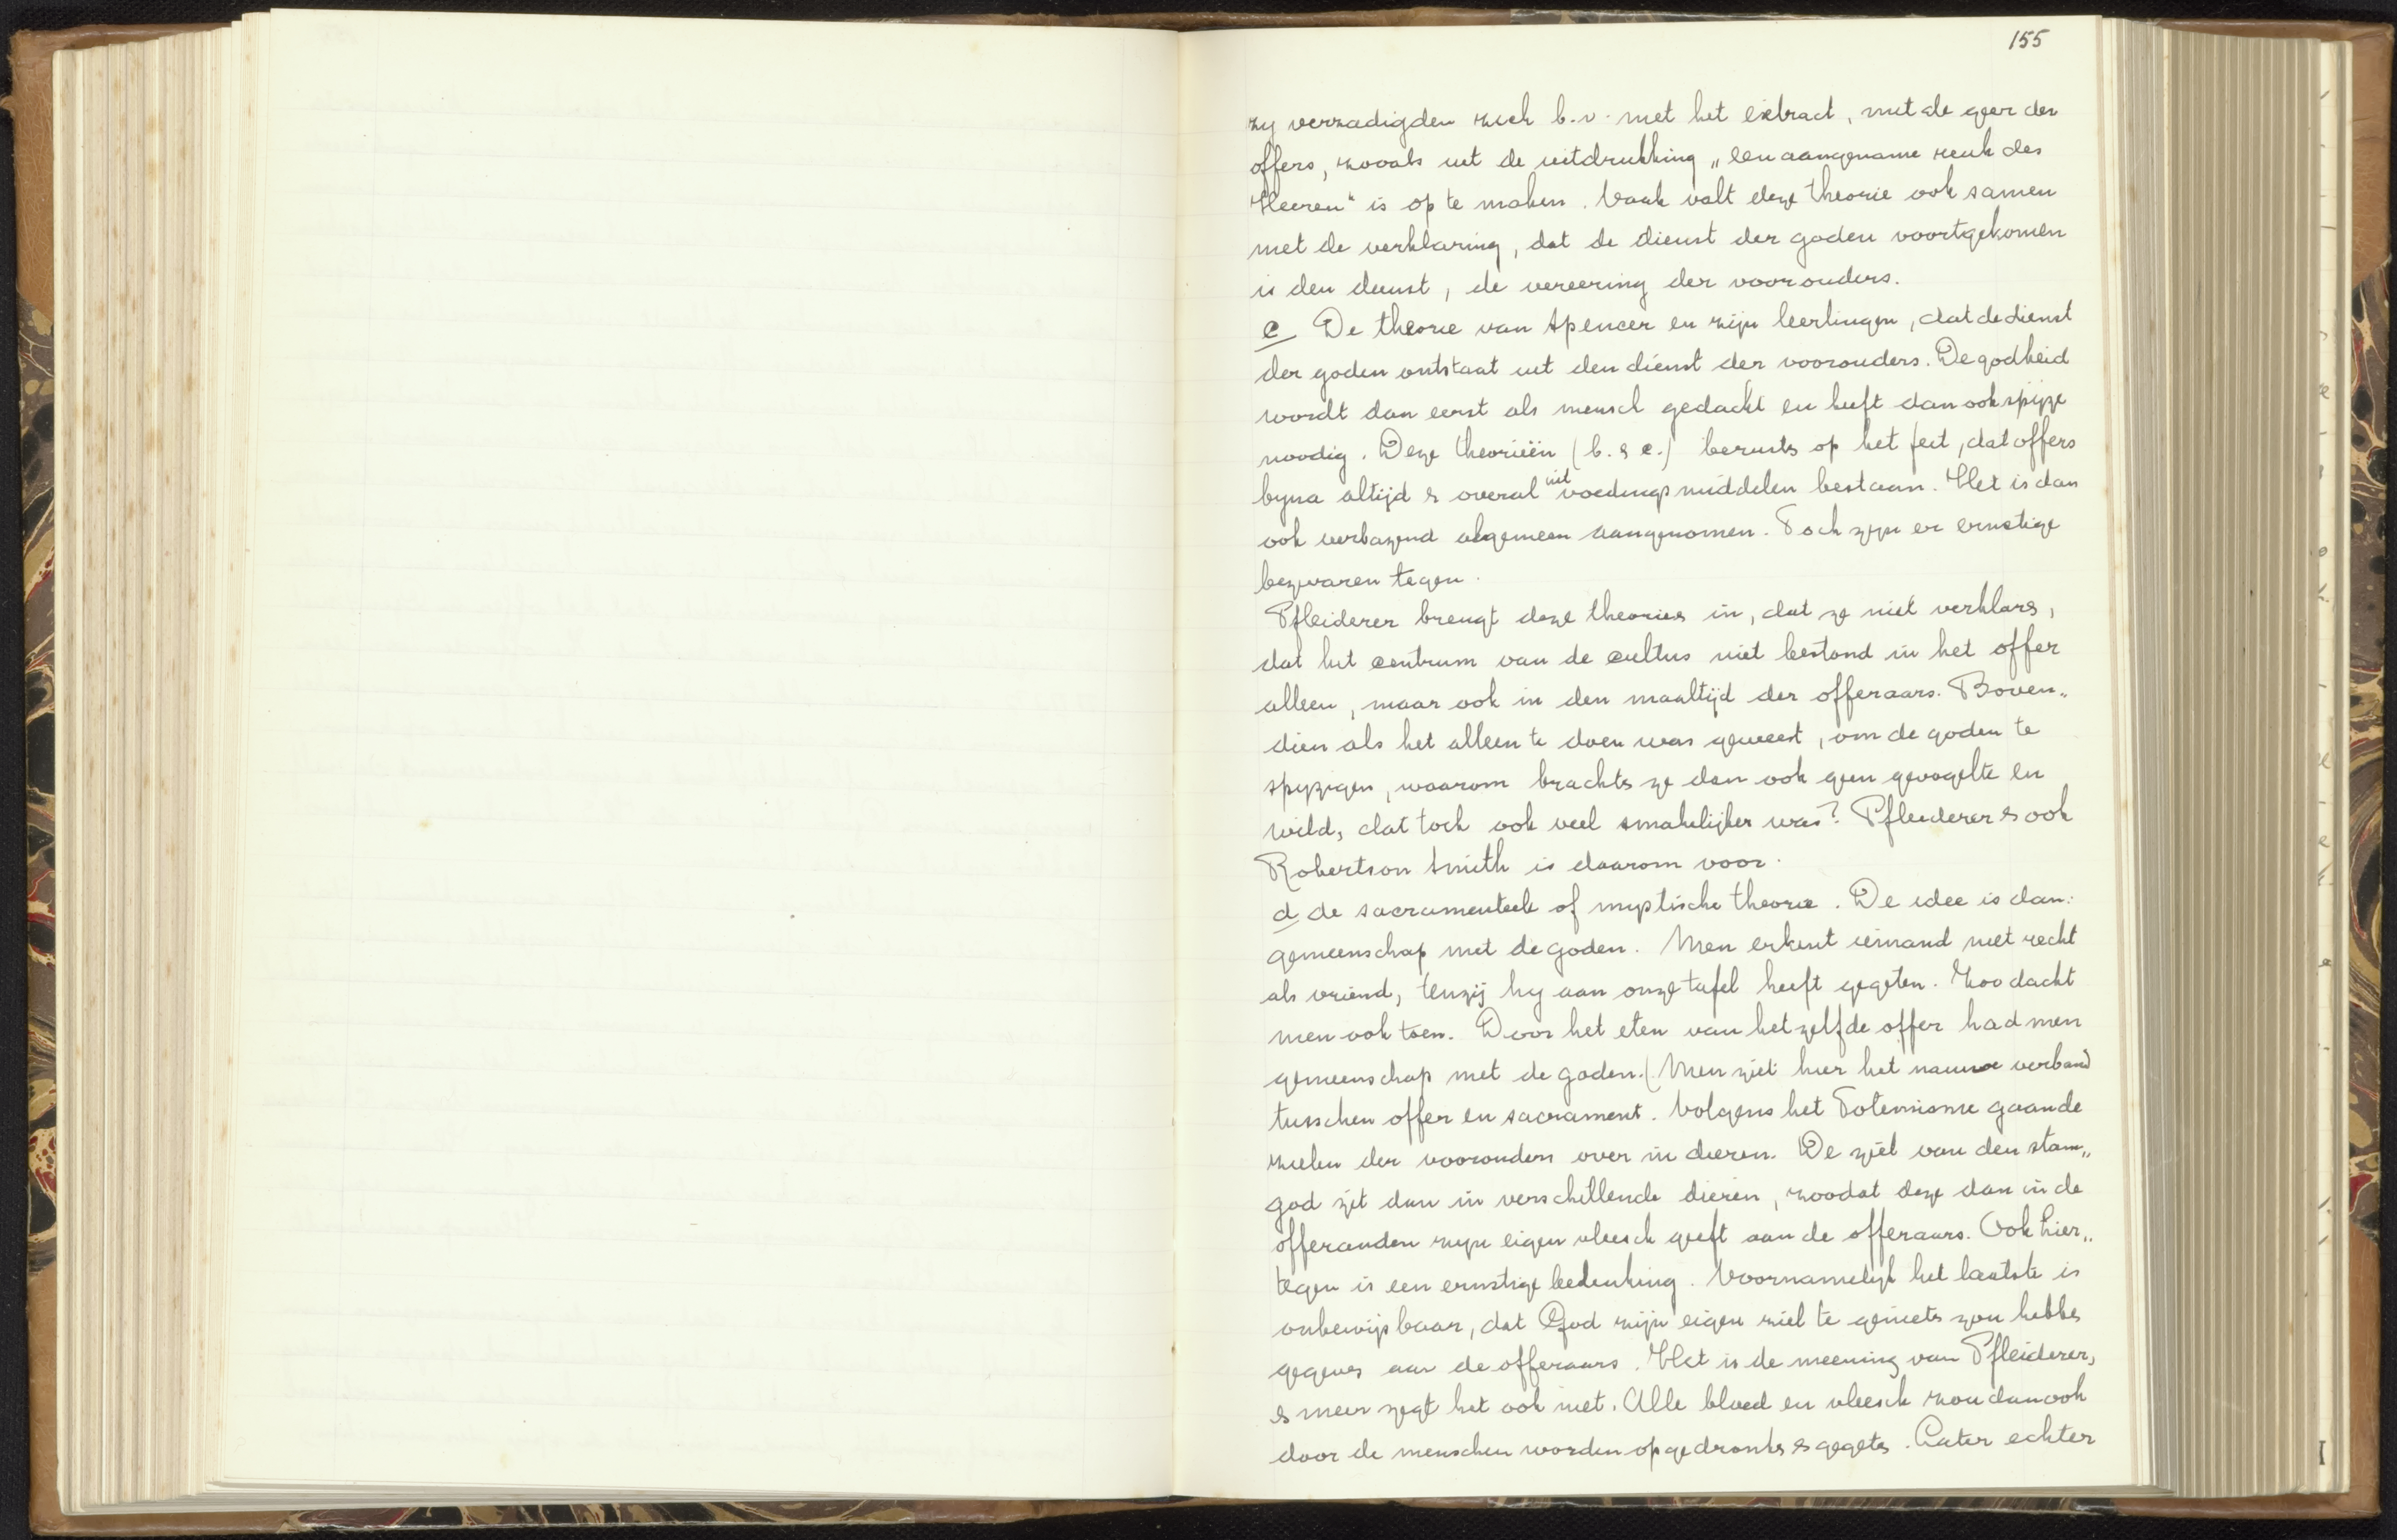 155
zy verzadigden zich b.v. met het extract, met de geur der
offers, zooals uit de uitdrukking „een aangename reuk des
Heeren" is op te maken. Vaak valt deze theorie ook samen
met de verklaring, dat de dienst der goden voortgekomen
is den dienst, de vereering der voorouders.
c De theorie van Spencer en zijn leerlingen, dat de dienst
der goden ontstaat uit den dienst der voorouders. De godheid
wordt dan eerst als mensch gedacht en heeft dan ook spijze
noodig. Deze theorieën (b. & c.) berusts op het feit, dat offers
byna altijd & overal uit voedingsmiddelen bestaan. Het is dan
ook verbazend algemeen aangenomen. Toch zyn er ernstige
bezwaren tegen.
Pfleiderer brengt deze theories in, dat ze niet verklars,
dat het centrum van de cultus niet bestond in het offer
alleen, maar ook in den maaltijd der offeraars. Boven„
dien als het alleen te doen was geweest, om de goden te
spyzigen, waarom brachts ze dan ook geen gevogelte en
wild, dat toch ook veel smakelijker was? Pfleiderer & ook
Robertson Smith is daarom voor.
d de sacramenteele of mystische theorie. De idee is dan:
gemeenschap met de goden. Men erkent iemand niet recht
als vriend, tenzij hy aan onze tafel heeft gegeten. Zoo dacht
men ook toen. Door het eten van hetzelfde offer had men
gemeenschap met de goden. (Men ziet hier het nauwe verband
tusschen offer en sacrament. Volgens het Totemisme gaan de
zielen der voorouders over in dieren. De ziel van den stam„
god zit dan in verschillende dieren, zoodat deze dan in de
offeranden zyn eigen vleesch geeft aan de offeraars. Ook hier„
tegen is een ernstige bedenking. Voornamelijk het laatste is
onbewijsbaar, dat God zijn eigen ziel te geniets zou hebbes
gegeves aan de offeraars. Het is de meening van Pfleiderer,
& meer zegt het ook niet. Alle bloed en vleesch zou dan ook
door de menschen worden opgedronks & gegets. Later echter